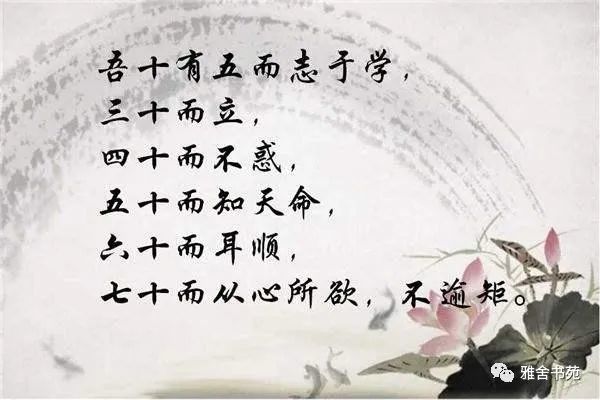 吾十有五而志于学，
三十而立，
四十而不惑，
五十而知天命，
六十而耳顺，
七十而从心所欲，不逾矩。
雅舍书苑